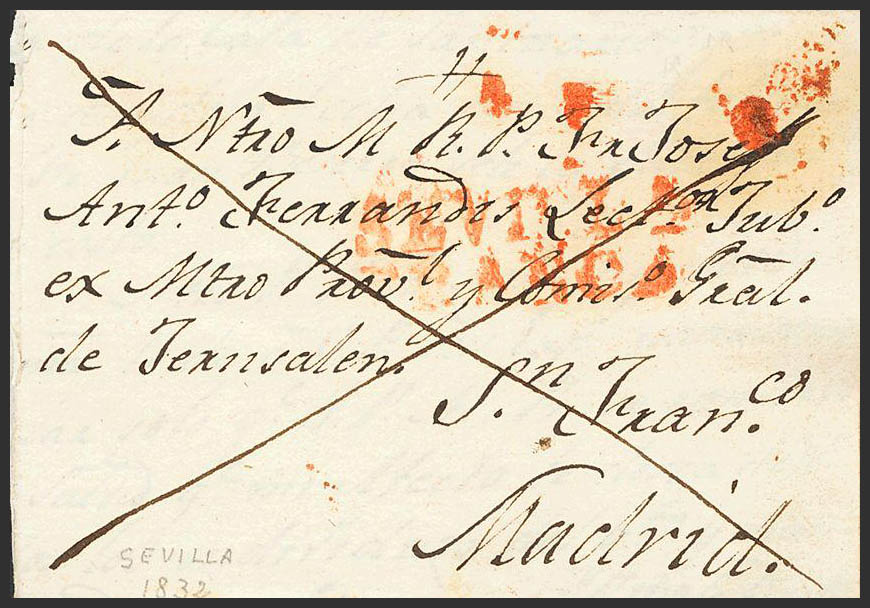 A. Ntro M R. P. Fr Jose
Anto. Ferrandis Lector Jubo.
ex Mtro Provl. y Comiso. Gral.
de Jerusalen.
Sn. Franco.
Madrid.
SEVILLA
FRANCA
SEVILLA
1832